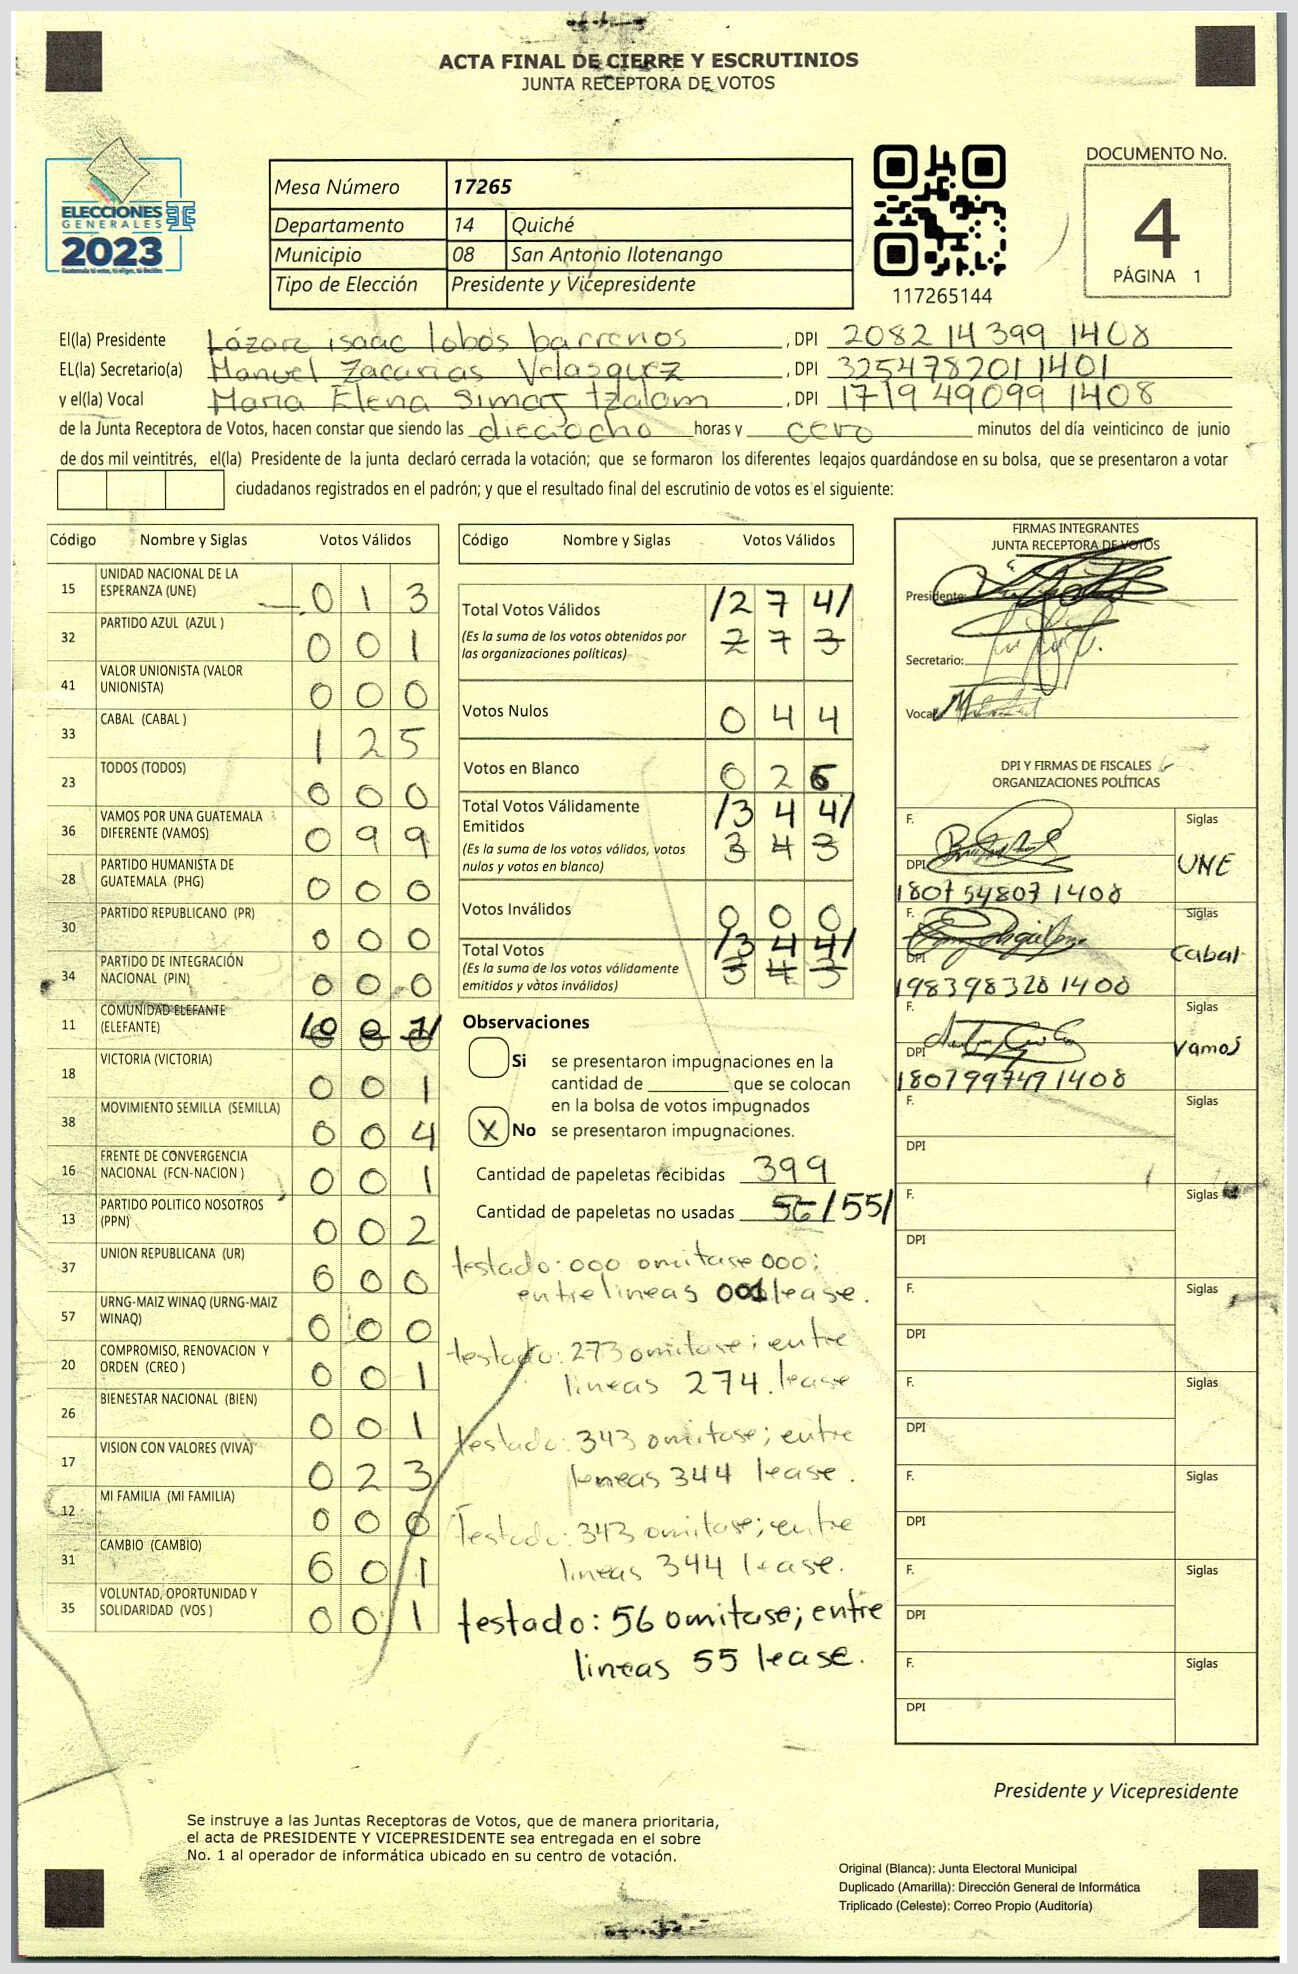 ACTA FINAL DE CIERRE Y ESCRUTINIOS
JUNTA RECEPTORA DE VOTOS
ELECCIONES
GENERALES
2023
Mesa Número 17265
Departamento 14 Quiché
Municipio 08 San Antonio Ilotenango
Tipo de Elección Presidente y Vicepresidente
117265144
DOCUMENTO No.
4
PÁGINA 1
El(la) Presidente Lázaro isaac lobos barrenos, DPI 2082 14399 1408
EL(la) Secretario(a) Manuel Zacarias Velasquez, DPI 3254782011401
y el(la) Vocal Maria Elena Simaj tzalam, DPI 1719 49099 1408
de la Junta Receptora de Votos, hacen constar que siendo las dieciocho horas y cero minutos del día veinticinco de junio
de dos mil veintitrés, el(la) Presidente de la junta declaró cerrada la votación; que se formaron los diferentes legajos guardándose en su bolsa, que se presentaron a votar
ciudadanos registrados en el padrón; y que el resultado final del escrutinio de votos es el siguiente:
Código Nombre y Siglas Votos Válidos
15 UNIDAD NACIONAL DE LA ESPERANZA (UNE) 0 1 3
32 PARTIDO AZUL (AZUL ) 0 0 1
41 VALOR UNIONISTA (VALOR UNIONISTA) 0 0 0
33 CABAL (CABAL ) 1 2 5
23 TODOS (TODOS) 0 0 0
36 VAMOS POR UNA GUATEMALA DIFERENTE (VAMOS) 0 9 9
28 PARTIDO HUMANISTA DE GUATEMALA (PHG) 0 0 0
30 PARTIDO REPUBLICANO (PR) 0 0 0
34 PARTIDO DE INTEGRACIÓN NACIONAL (PIN) 0 0 0
11 COMUNIDAD ELEFANTE (ELEFANTE) /0 0 1/
18 VICTORIA (VICTORIA) 0 0 1
38 MOVIMIENTO SEMILLA (SEMILLA) 0 0 4
16 FRENTE DE CONVERGENCIA NACIONAL (FCN-NACION ) 0 0 1
13 PARTIDO POLITICO NOSOTROS (PPN) 0 0 2
37 UNION REPUBLICANA (UR) 0 0 0
57 URNG-MAIZ WINAQ (URNG-MAIZ WINAQ) 0 0 0
20 COMPROMISO, RENOVACION Y ORDEN (CREO ) 0 0 1
26 BIENESTAR NACIONAL (BIEN) 0 0 1
17 VISION CON VALORES (VIVA) 0 2 3
12 MI FAMILIA (MI FAMILIA) 0 0 0
31 CAMBIO (CAMBIO) 0 0 1
35 VOLUNTAD, OPORTUNIDAD Y SOLIDARIDAD (VOS ) 0 0 1
Código Nombre y Siglas Votos Válidos
Total Votos Válidos /2 7 4/
(Es la suma de los votos obtenidos por las organizaciones políticas) 2 7 3
Votos Nulos 0 4 4
Votos en Blanco 0 2 6
Total Votos Válidamente Emitidos /3 4 4/
(Es la suma de los votos válidos, votos nulos y votos en blanco) 3 4 3
Votos Inválidos 0 0 0
Total Votos /3 4 4/
(Es la suma de los votos válidamente emitidos y vótos inválidos) 3 4 3
Observaciones
Si se presentaron impugnaciones en la
cantidad de ________ que se colocan
en la bolsa de votos impugnados
X No se presentaron impugnaciones.
Cantidad de papeletas recibidas 399
Cantidad de papeletas no usadas 56/55/
testado: 000 omitase 000;
entre lineas 001 lease.
testado: 273 omitase; entre
lineas 274. lease
testado: 343 omitase; entre
lineas 344 lease.
Testado: 343 omitase; entre
lineas 344 lease.
testado: 56 omitase; entre
lineas 55 lease.
FIRMAS INTEGRANTES
JUNTA RECEPTORA DE VOTOS
Presidente:
Secretario:
Vocal
DPI Y FIRMAS DE FISCALES
ORGANIZACIONES POLÍTICAS
F. Siglas
DPI UNE
1807 54807 1408
F. Siglas
DPI Cabal
198398328 1408
F. Siglas
DPI Vamos
1807997491408
F. Siglas
DPI
F. Siglas
DPI
F. Siglas
DPI
F. Siglas
DPI
F. Siglas
DPI
F. Siglas
DPI
F. Siglas
DPI
Presidente y Vicepresidente
Se instruye a las Juntas Receptoras de Votos, que de manera prioritaria,
el acta de PRESIDENTE Y VICEPRESIDENTE sea entregada en el sobre
No. 1 al operador de informática ubicado en su centro de votación.
Original (Blanca): Junta Electoral Municipal
Duplicado (Amarilla): Dirección General de Informática
Triplicado (Celeste): Correo Propio (Auditoría)